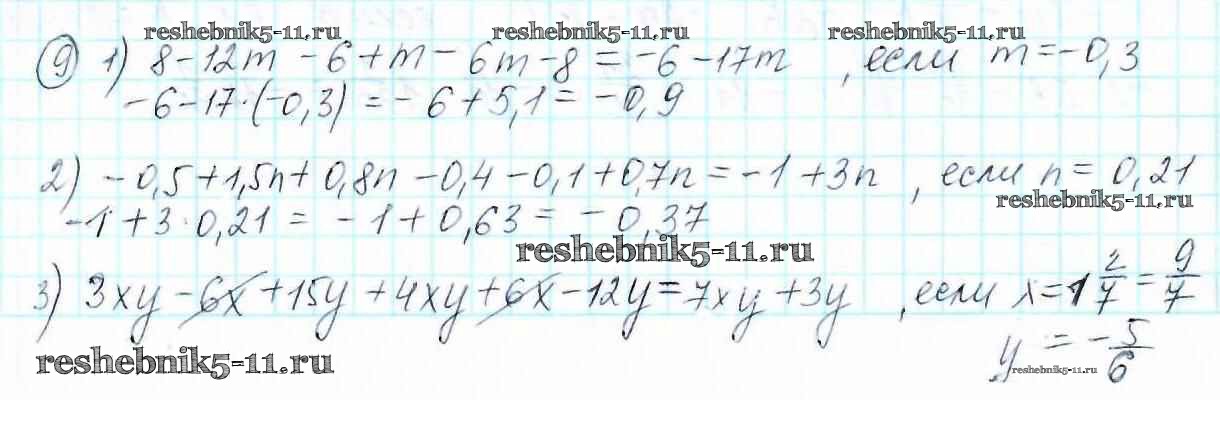 reshebnik5-11.ru reshebnik5-11.ru reshebnik5-11.ru
9 1) 8-12m -6+m-6m-8=-6-17m , если m=-0,3
-6-17·(-0,3)=-6+5,1=-0,9
2) -0,5+1,5n+0,8n-0,4-0,1+0,7n=-1+3n , если n=0,21
reshebnik5-11.ru
-1+3·0,21=-1+0,63=-0,37
reshebnik5-11.ru
3) 3xy-6x+15y+4xy+6x-12y=7xy+3y , если x=1 2/7=9/7
y=-5/6
reshebnik5-11.ru
reshebnik5-11.ru